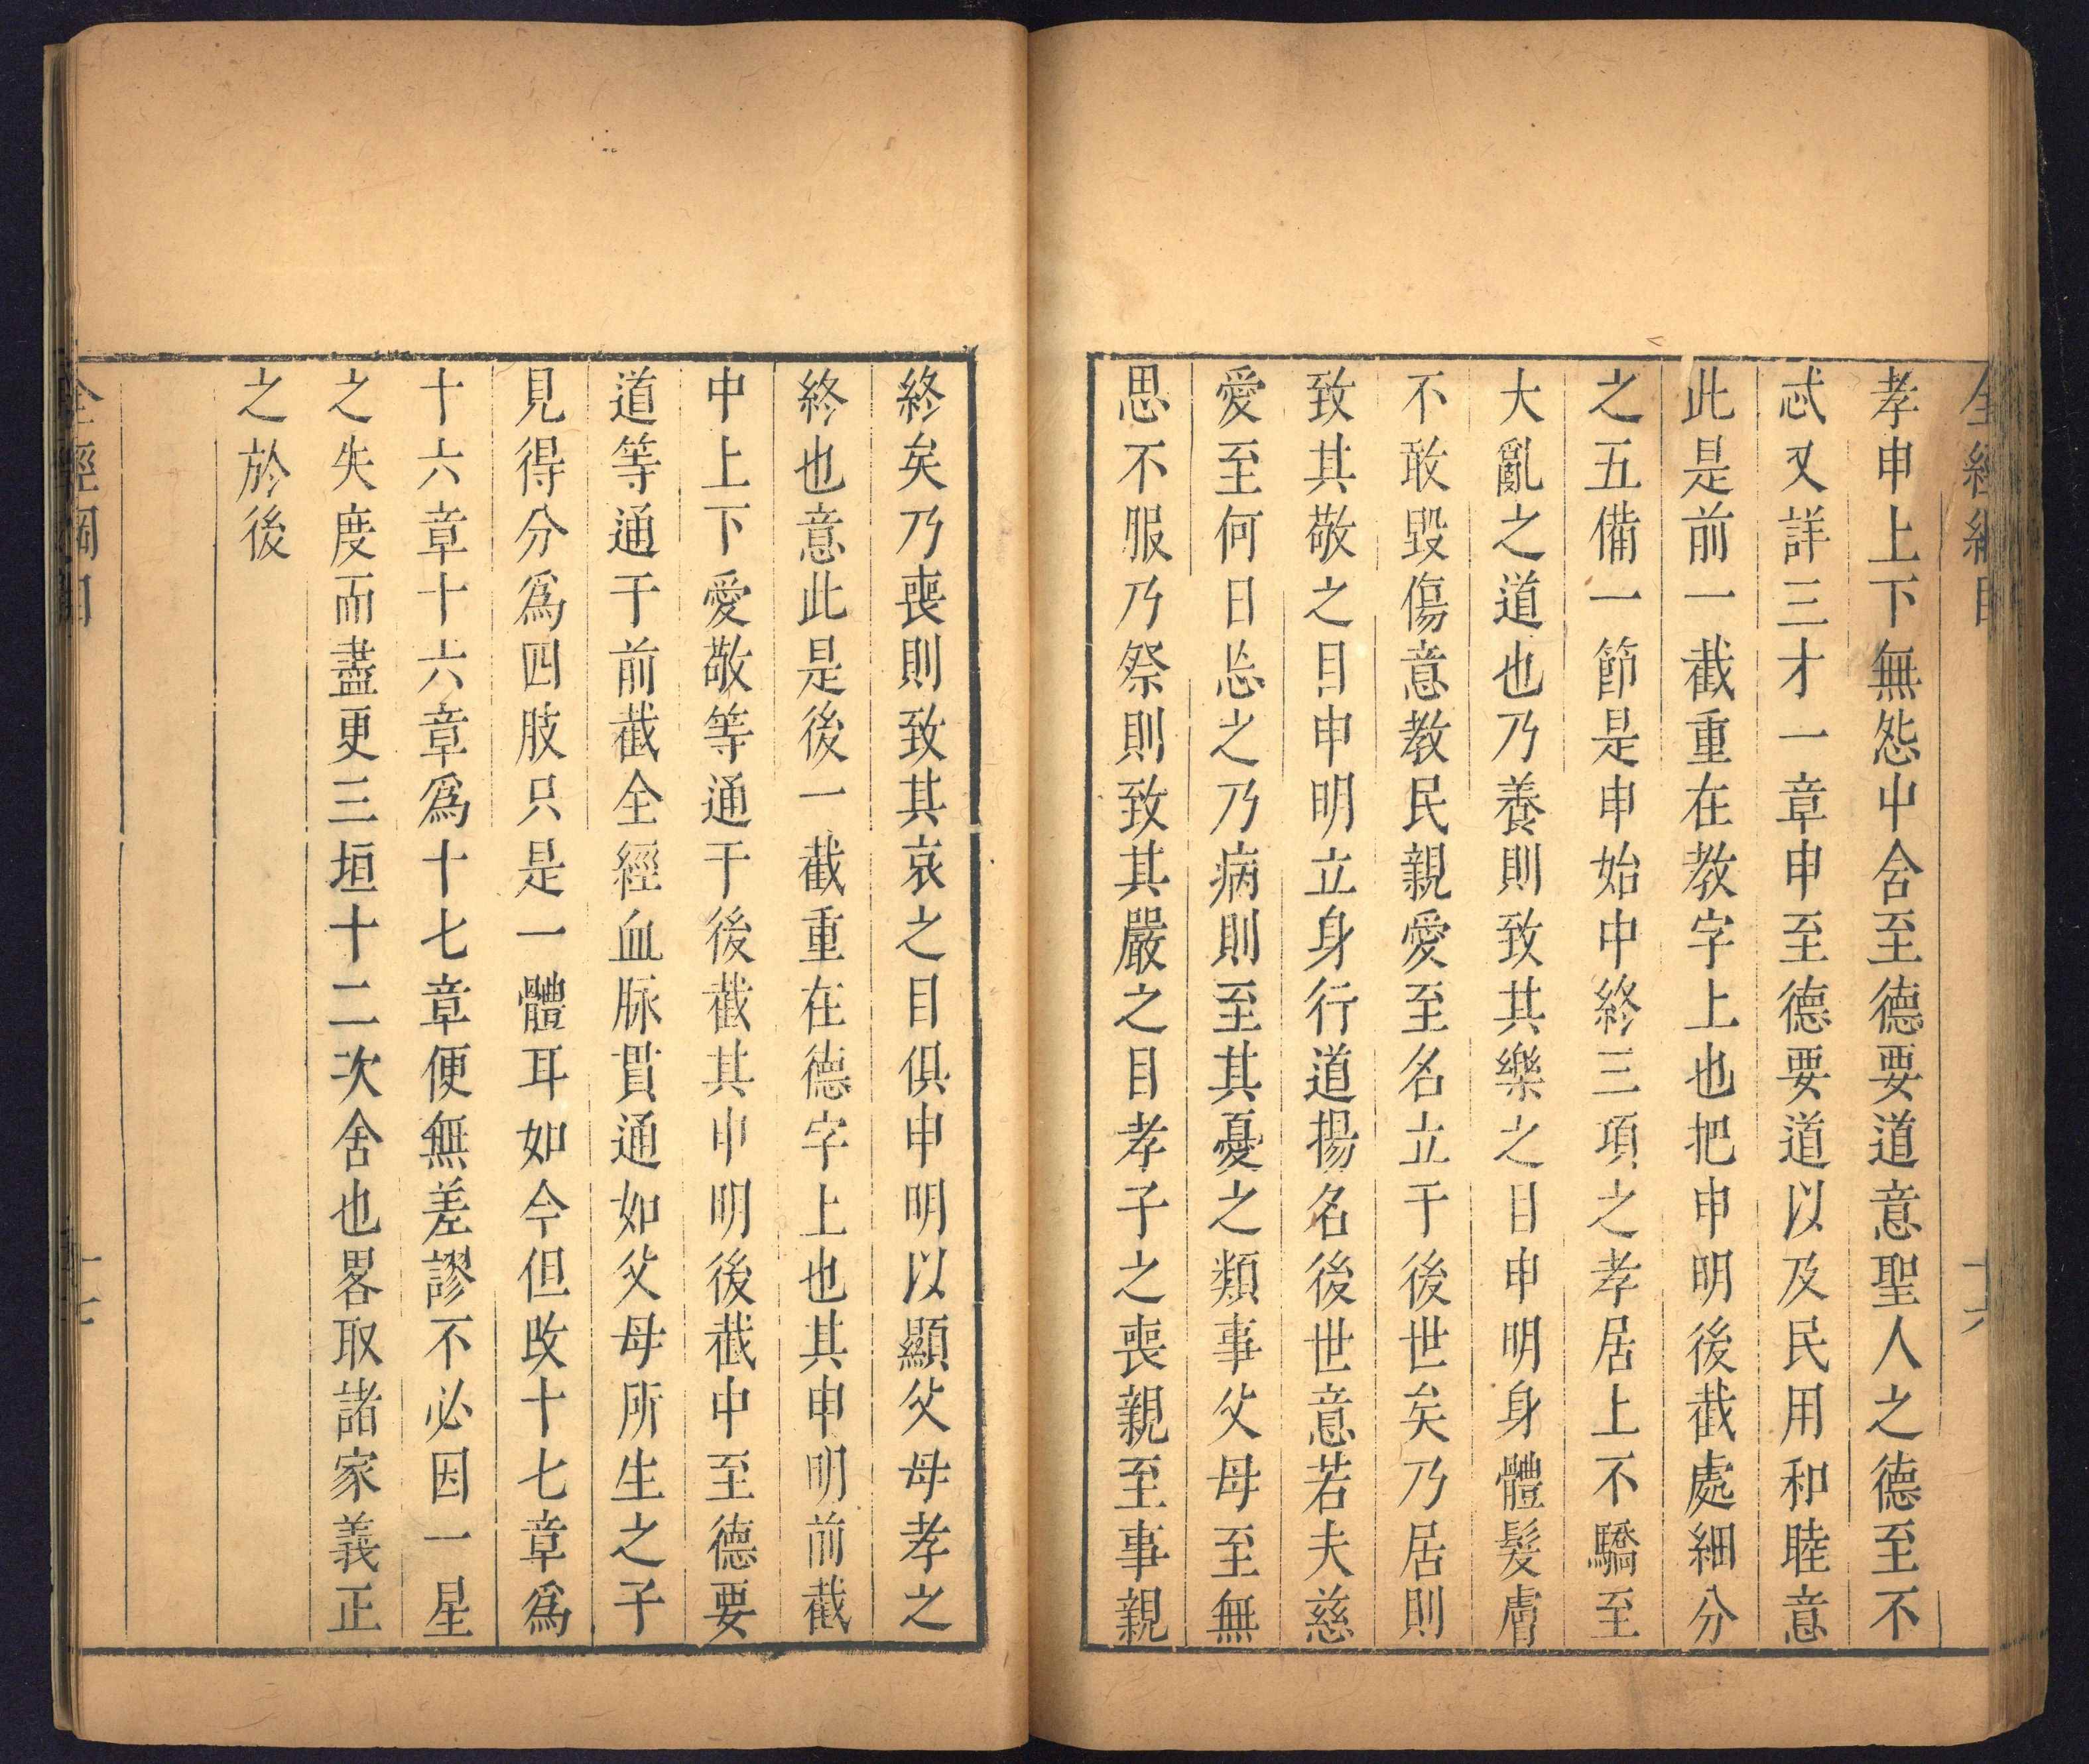 全經綱目 十六
孝申上下無怨中含至德要道意聖人之德至不
忒又詳三才一章申至德要道以及民用和睦意
此是前一截重在教字上也把申明後截處細分
之五備一節是申始中終三項之孝居上不驕至
大亂之道也乃養則致其樂之目申明身體髮膚
不敢毀傷意教民親愛至名立于後世矣乃居則
致其敬之目申明立身行道揚名後世意若夫慈
愛至何日忘之乃病則至其憂之類事父母至無
思不服乃祭則致其嚴之目孝子之喪親至事親
終矣乃喪則致其哀之目俱申明以顯父母孝之
終也意此是後一截重在德字上也其申明前截
中上下愛敬等通于後截其申明後截中至德要
道等通于前截全經血脉貫通如父母所生之子
見得分為四肢只是一體耳如今但改十七章為
十六章十六章為十七章便無差謬不必因一星
之失度而盡更三垣十二次舍也畧取諸家義正
之於後
全經綱目 十七